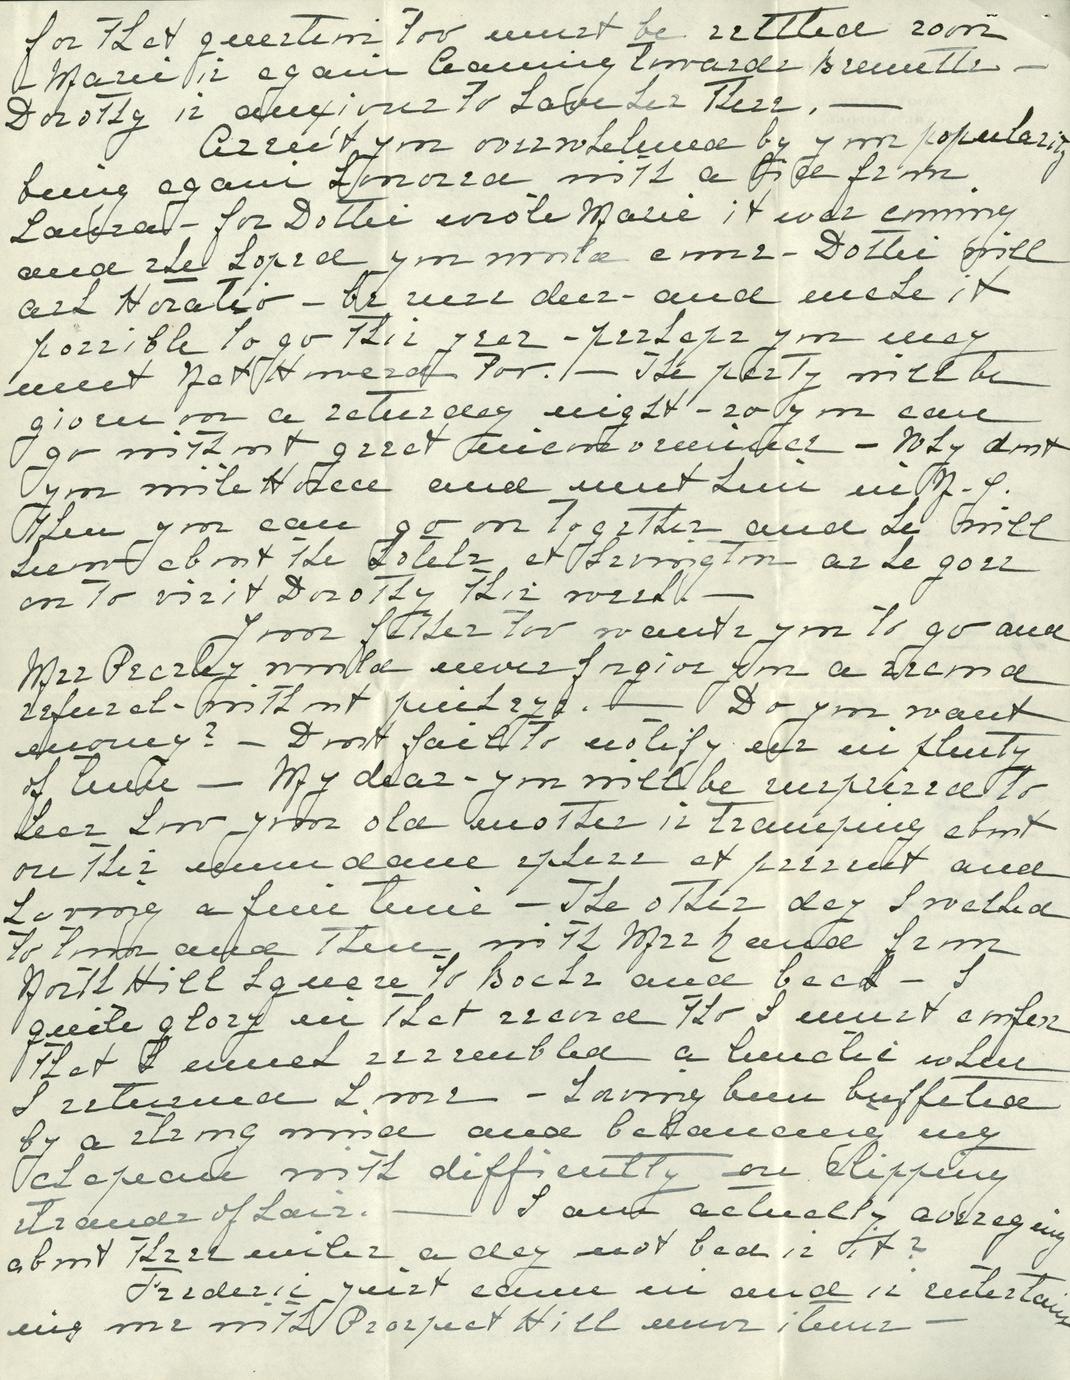 for that question too must be settled soon
Marie is again leaning towards Brunette -
Dorothy is anxious to have her there. —
Aren't you overwhelmed by your popularity
being again honored with a bid from
Laura - for Dottie wrote Marie it was coming
and she hoped you would come - Dottie will
ask Horatio - be sure dear - and make it
possible to go this year - perhaps you may
meet Nat Howard too. — The party will be
given on a saturday night - so you can
go without great inconvenience - Why dont
you write and meet him in N.Y.
Then you can go on together and he will
know about the hotels at Irvington as he goes
on to visit Dorothy this week. —
Your father too wants you to go and
Mrs Pearley would never forgive you a second
refusal - without . — Do you want
money? - Dont fail to notify me in plenty
of time — My dear - you will be surprised to
hear how your old mother is tramping about
on this mundane sphere at present and
having a fine time - The other day I walked
to town and then with Mrs from
North Hill Square to Bochs and back - I
quite glory in that record tho I must confess
that I much resembled a lunatic when
I returned home - having been buffeted
by a strong wind and balancing my
chapeau with difficulty on slipping
strands of hair. — I am actually averaging
about three miles a day not bad is it?
Frederic just came in and is entertain
ing me with Prospect Hill news items -